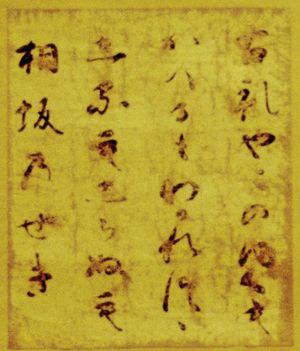 古礼やこのゆくも
かへるもわかれつゝ
志るもしらぬも
相坂乃せき